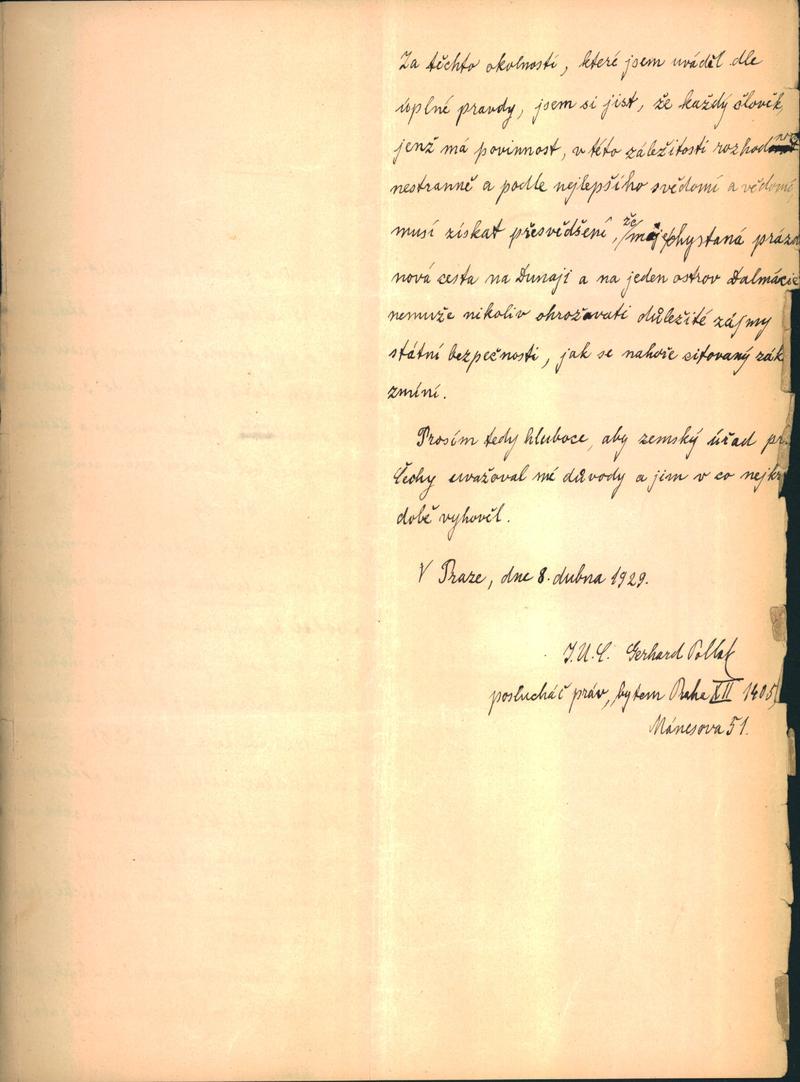 Za těchto okolností, které jsem uváděl dle
úplné pravdy, jsem si jist, že každý člověk,
jenž má povinnost, v této záležitosti rozhodnout
nestranně a podle nejlepšího svědomí a vědomí,
musí získat přesvědšení, že moje chystaná prázd
nová cesta na Dunaji a na jeden ostrov Dalmácie
nemuže nikoliv ohrožovati důležité zájmy
státní bezpečnosti, jak se nahoře citovaný zák
zmíní.
Prosím tedy hluboce, aby zemský úřad pro
Čechy uvažoval mé důvody a jim v co nejkr
době vyhověl.
V Praze, dne 8. dubna 1929.
J.U.C. Gerhard Pollak
posluchač práv, bytem Praha XII 1405,
Mánesova 51.